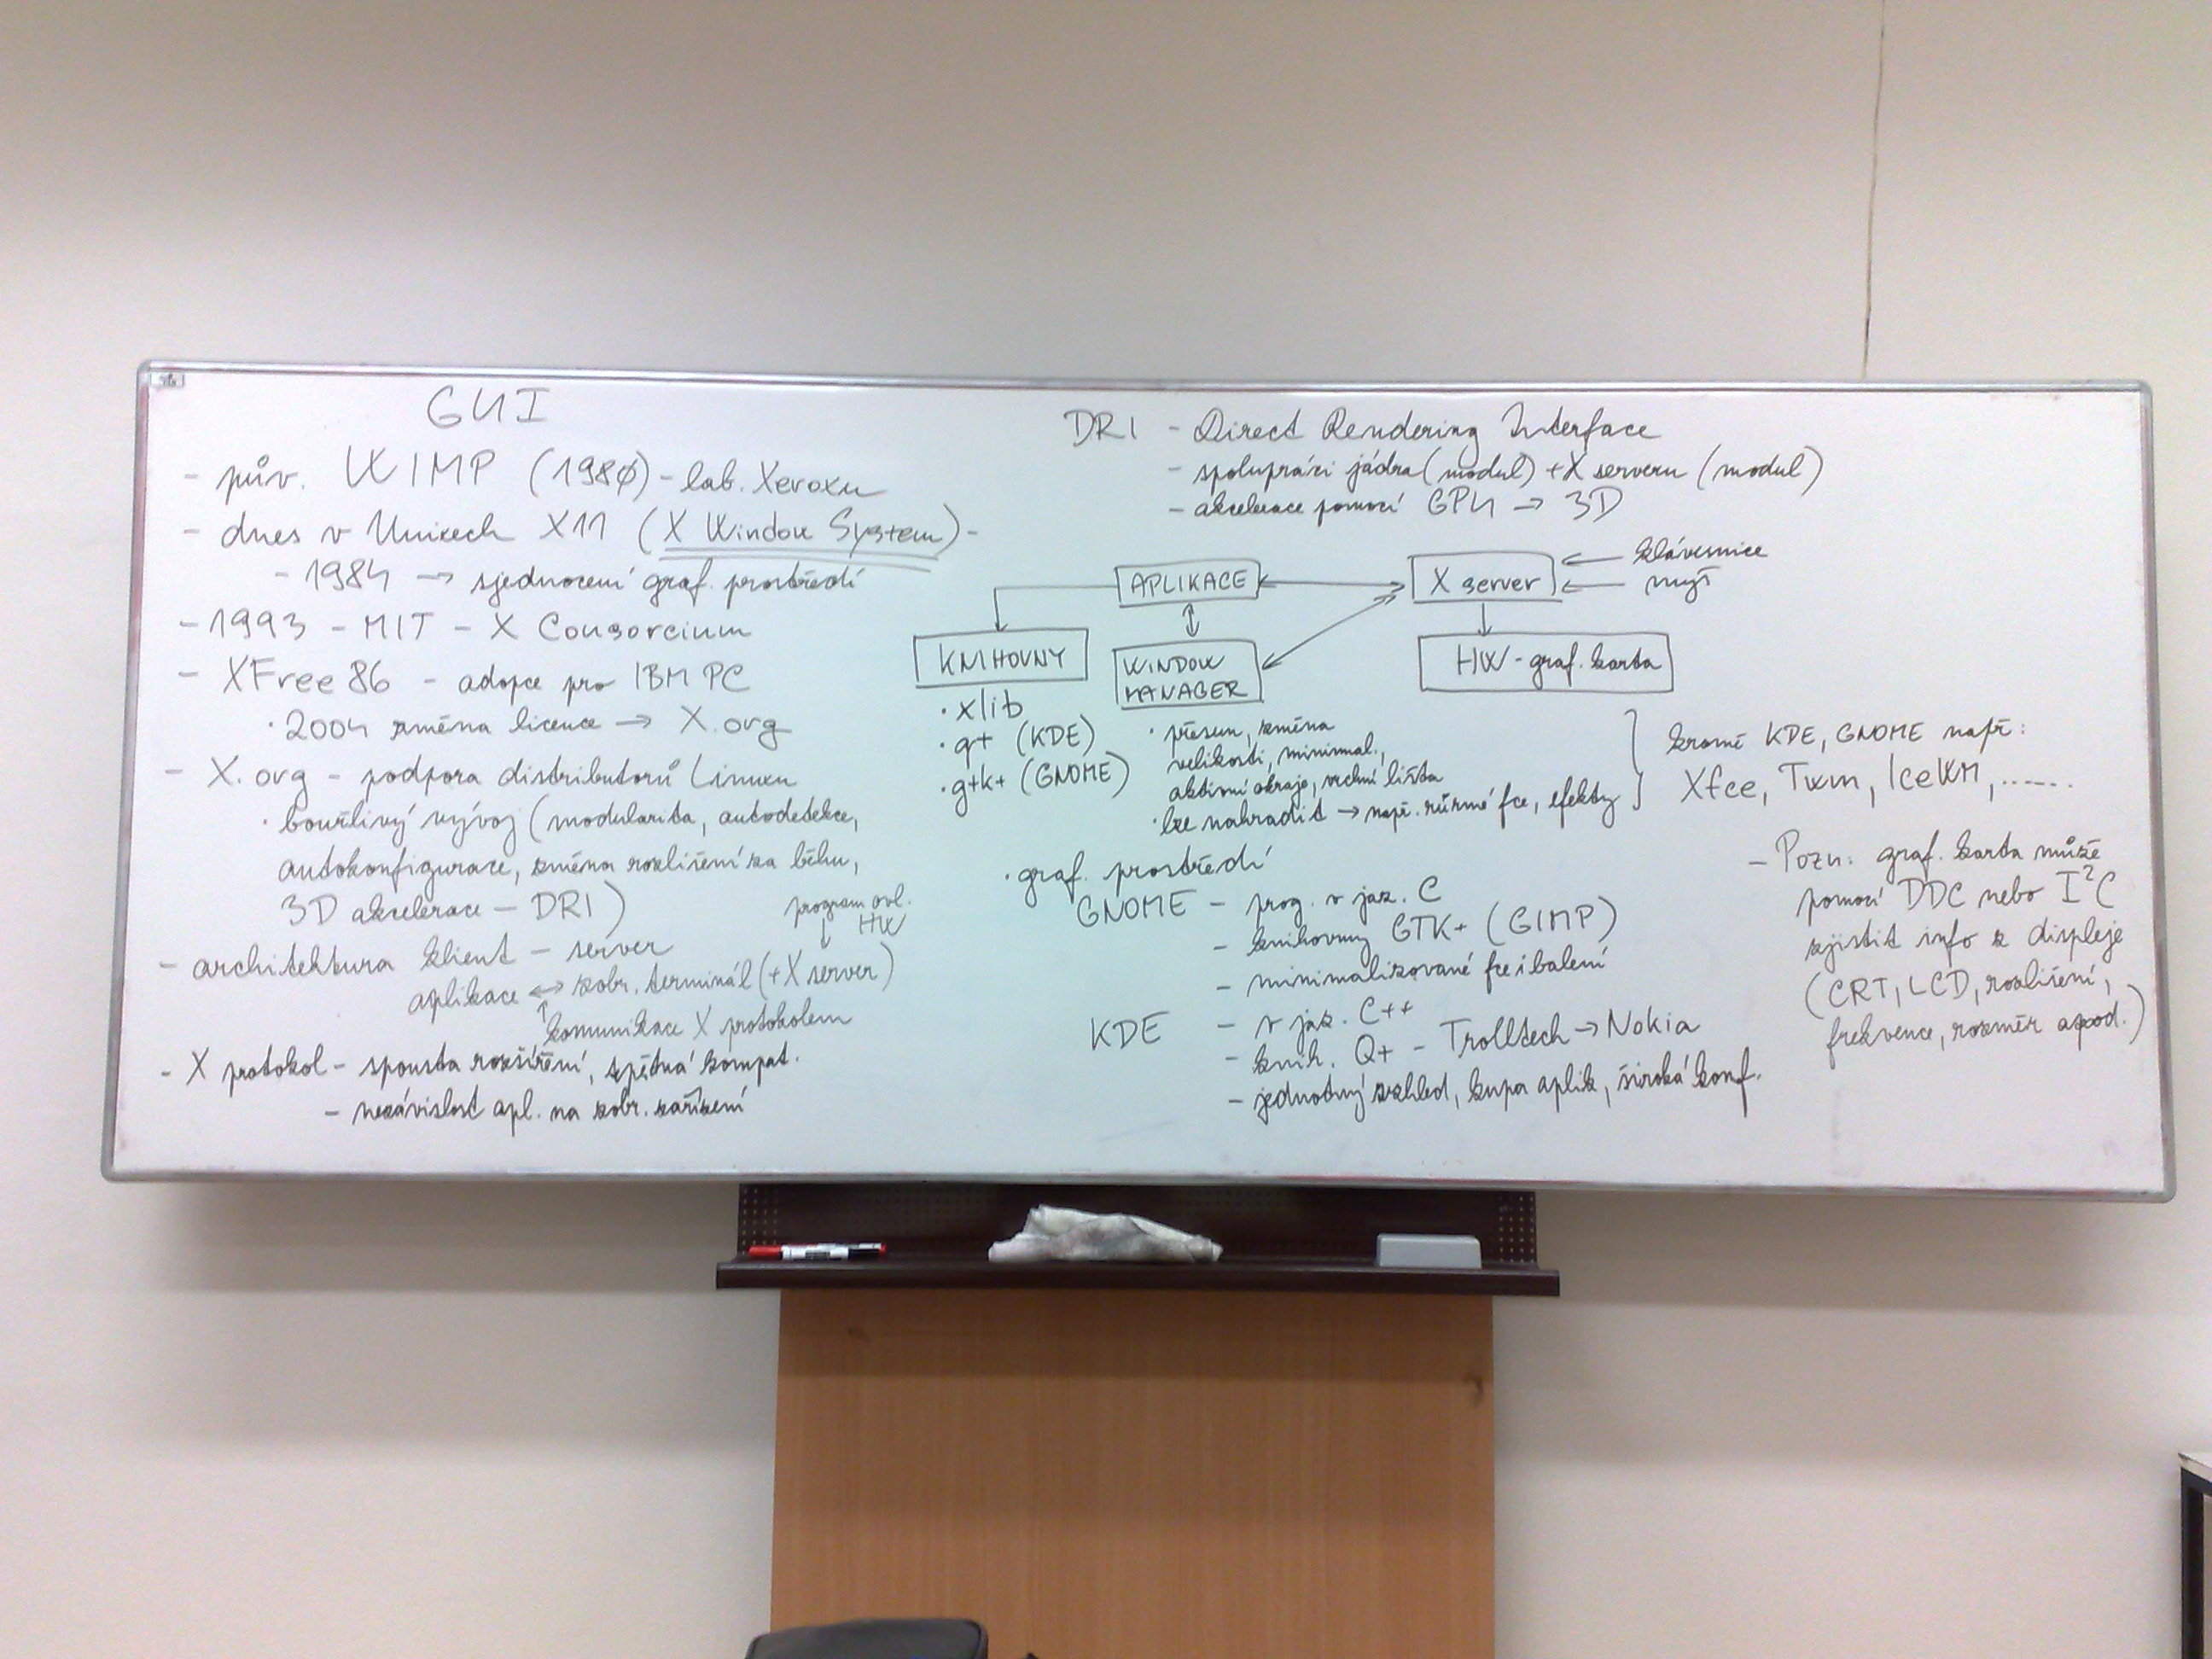 GUI
- pův. WIMP (1980) - lab. Xeroxu
- dnes v Unixech X11 (X Window System) -
- 1984 → sjednocení graf. prostředí
- 1993 - MIT - X Consorcium
- XFree86 - adopce pro IBM PC
· 2004 změna licence → X.org
- X.org - podpora distributorů Linuxu
· bouřlivý vývoj (modularita, autodetekce,
autokonfigurace, změna rozlišení za běhu,
3D akcelerace - DRI)
program ovl.
HW
↓
- architektura klient - server
aplikace ↔ zobr. terminál (+X server)
↑
komunikace X protokolem
- X protokol - spousta rozšíření, zpětná kompat.
- nezávislost apl. na zobr. zařízení
DRI - Direct Rendering Interface
- spolupráci jádra (modul) + X serveru (modul)
- akcelerace pomocí GPU → 3D
APLIKACE
X server
klávesnice
myš
KNIHOVNY
WINDOW
MANAGER
HW - graf. karta
· xlib
· qt (KDE)
· gtk+ (GNOME)
· přesun, změna
velikosti, minimal.,
aktivní okraje, vrchní lišta
· lze nahradit → např. různé fce, efekty
kromě KDE, GNOME např:
Xfce, Twm, IceWM, ......
· graf. prostředí
GNOME - prog. v jaz. C
- knihovny GTK+ (GIMP)
- minimalizované fce i balení
KDE - v jaz. C++
- knih. Qt - Trolltech → Nokia
- jednotný vzhled, kupa aplik, široká konf.
- Pozn: graf. karta může
pomocí DDC nebo I²C
zjistit info z displeje
(CRT, LCD, rozlišení,
frekvence, rozměr apod.)